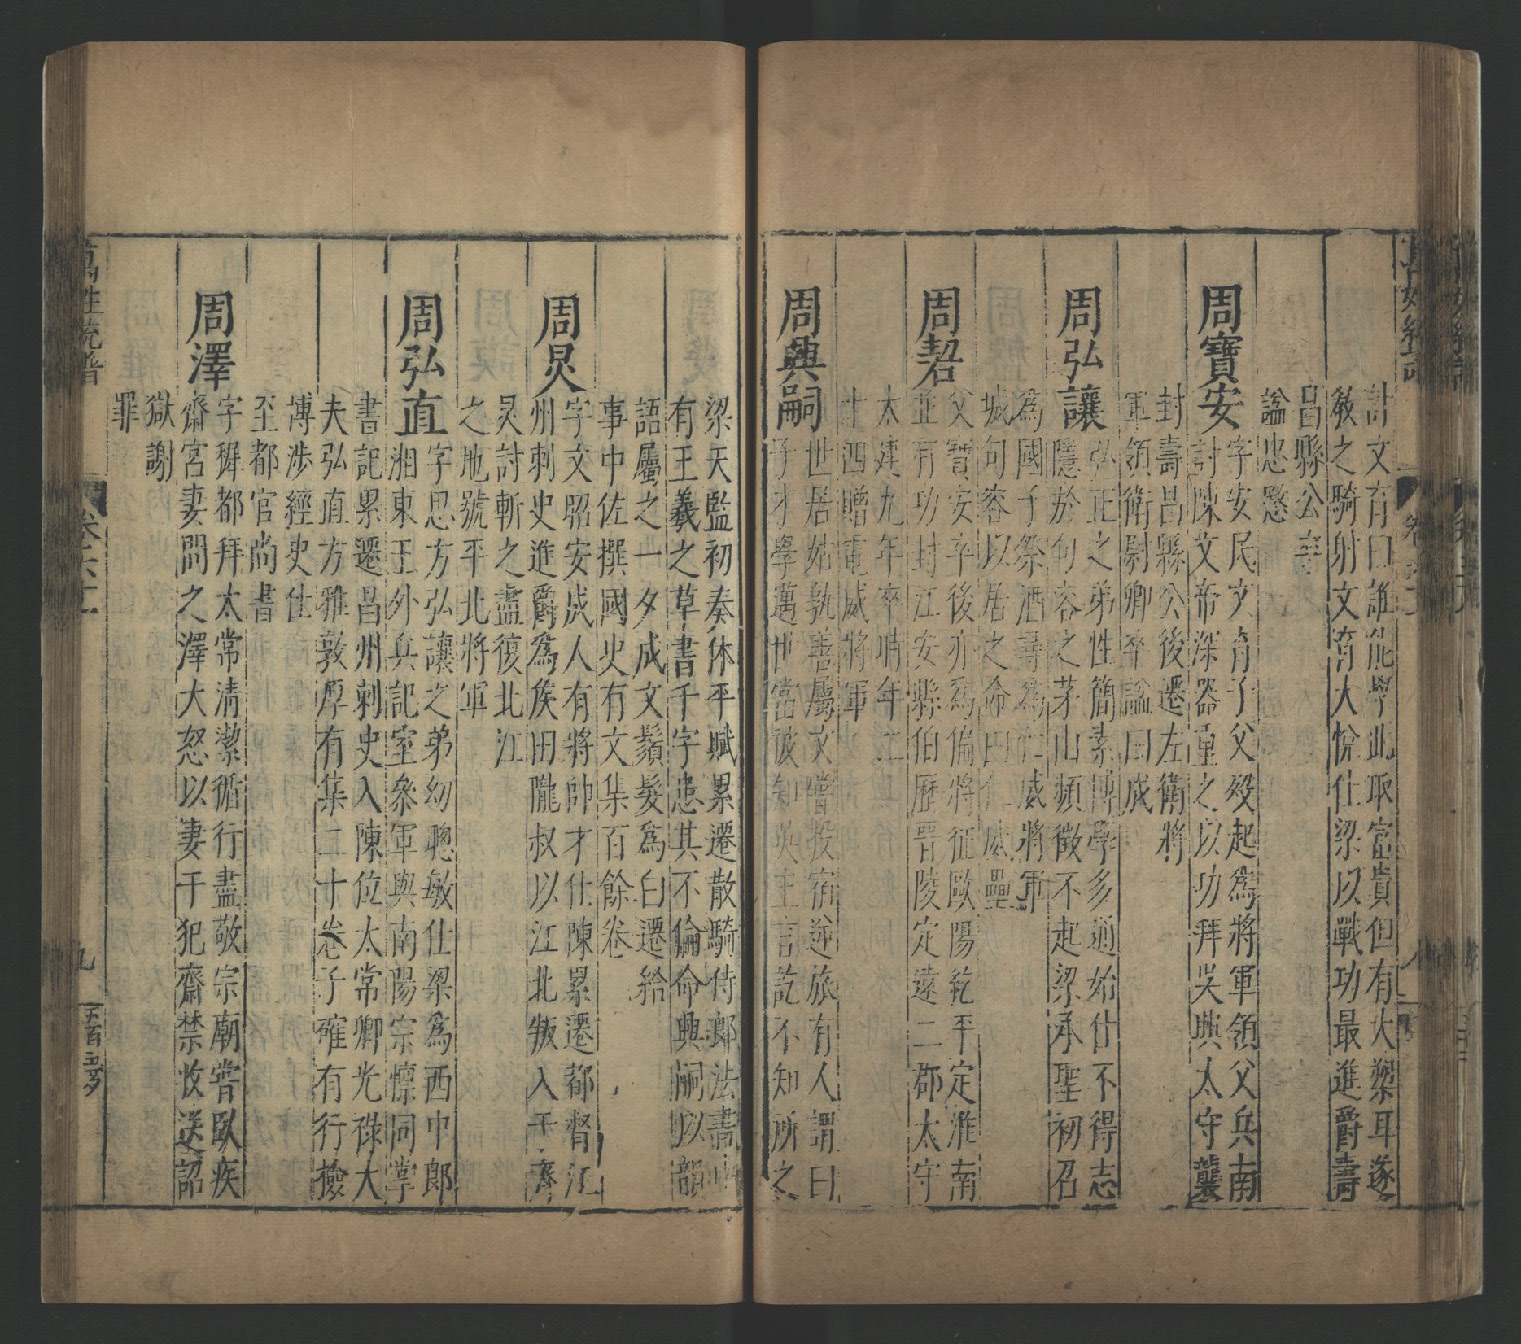 計文育曰誰能學此取富貴但有大槊耳遂
教之騎射文育大悅仕梁以戰功最進爵壽
昌縣公卒
諡忠愍
周寶安 字安民文育子父歿起爲將軍領父兵南
討陳文帝深器重之以功拜吳興太守襲
封壽昌縣公後遷左衛將
軍領衛尉卿卒諡曰成
周弘讓 弘正之弟性簡素博學多通始仕不得志
隱於句容之茅山頻徵不起梁承聖初召
爲國子祭酒壽爲仁威將軍
城句容以居之命曰仁威壘
周䂮 父寶安卒後亦爲偏將征歐陽紇平定淮南
並有功封江安縣伯歷晉陵定遠二郡太守
太建九年卒時年
廿四贈電威將軍
周興嗣 世居姑孰善屬文嘗投宿逆旅有人謂曰
子才學邁世當被知英主言訖不知所之
梁天監初奏休平賦累遷散騎侍郎法書
有王羲之草書千字患其不倫命興嗣以韻
語屬之一夕成文鬚髮爲白遷給
事中佐撰國史有文集百餘卷
周炅 字文昭安成人有將帥才仕陳累遷都督江
州刺史進爵爲矦田隴叔以江北叛入于齊
炅討斬之盡復北江
之地號平北將軍
周弘直 字思方弘讓之弟幼聰敏仕梁爲西中郎
湘東王外兵記室參軍與南陽宗懍同掌
書記累遷昌州刺史入陳位太常卿光祿大
夫弘直方雅敦厚有集二十卷子確有行撿
博涉經史仕
至都官尚書
周澤 字穉都拜太常清潔循行盡敬宗廟嘗臥疾
齋宮妻問之澤大怒以妻干犯齋禁收送詔
獄謝
罪
萬姓統譜
卷六十一
九